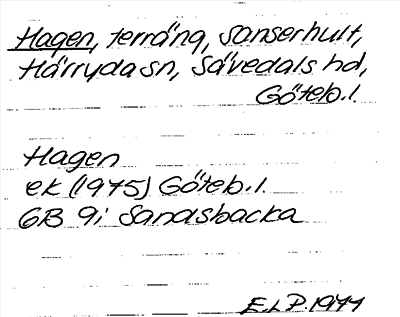 Hagen, terräng, Sanserhult,
Härryda sn, Sävedals hd,
Göteb.l.
Hagen
ek (1975) Göteb.l.
6B 9i Sandsbacka
E.L.P. 1977